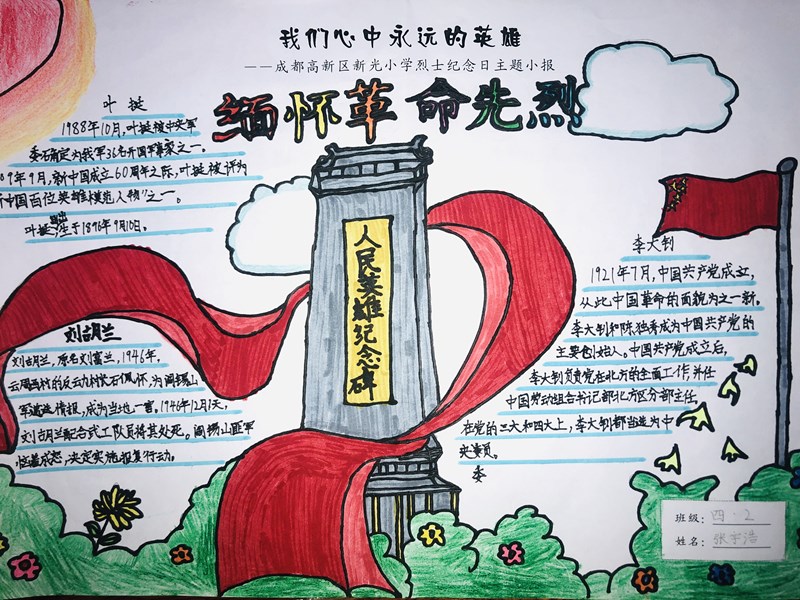 我们心中永远的英雄
——成都高新区新光小学烈士纪念日主题小报
缅怀革命先烈
叶挺
1988年10月,叶挺被中央军
委确定为我军36名开国军事家之一。
09年9月,新中国成立60周年之际,叶挺被评为
新中国百位英雄模范人物”之一。
叶挺出生于1896年9月10日。
人民英雄纪念碑
刘古月兰
刘古月兰,原名刘富兰,1946年,
云周西村的反云力村长石佩怀,为阎锡山
军递送情报,成为当地一害。1946年12月1天,
刘古月兰配合武工队员将其处死。阎锡山匪军
恼羞成怒,决定实施报复行动。
李大钊
1921年7月,中国共产党成立,
从此中国革命的面貌为之一新。
李大钊和陈独秀成为中国共产党的
主要创始人。中国共产党成立后,
李大钊负责党在北方的全面工作,并任
中国劳动组合书记部北方区分部主任。
在党的三大和四大上,李大钊都当选为中
央委员。
委
班级:四·2
姓名:张宇浩